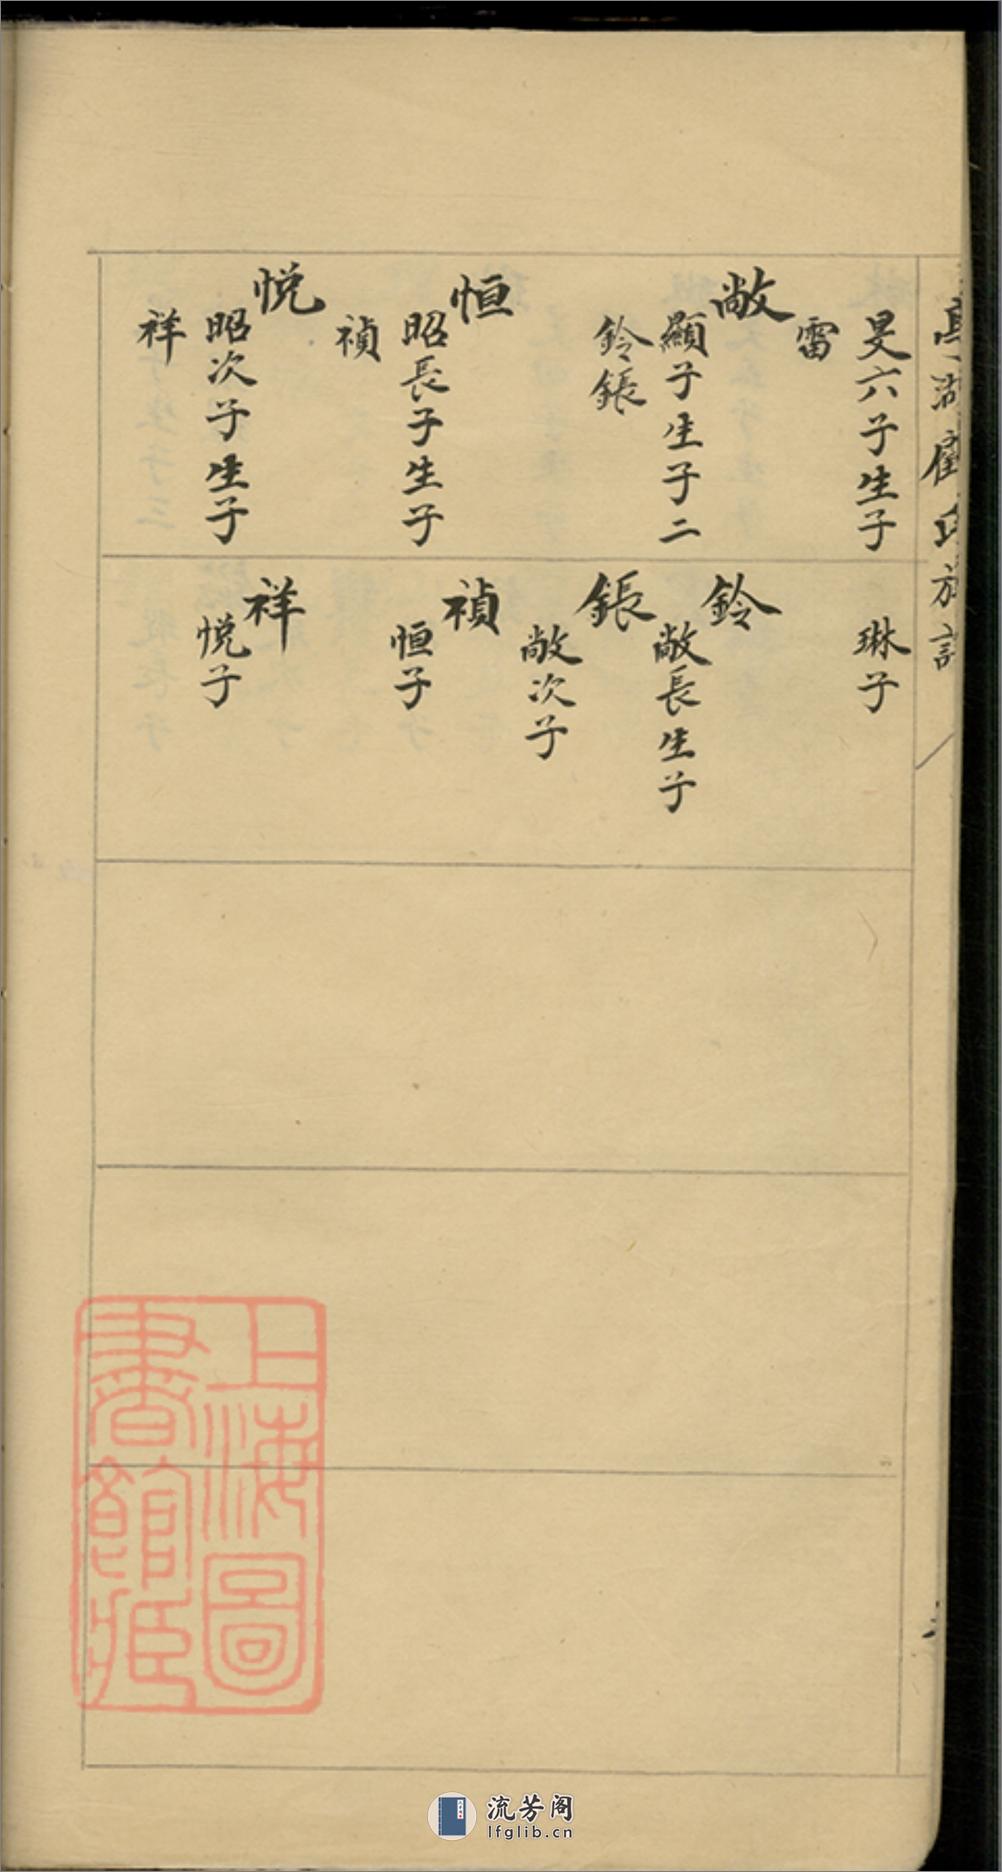 亭湖顧氏族譜
旻六子生子
雷
敞
顯子生子二
鈴鋹
恒
昭長子生子
禎
悦
昭次子生子
祥
琳子
鈴
敞長生子
鋹
敞次子
禎
恒子
祥
悦子
上海圖
書館藏
流芳阁
lfglib.cn